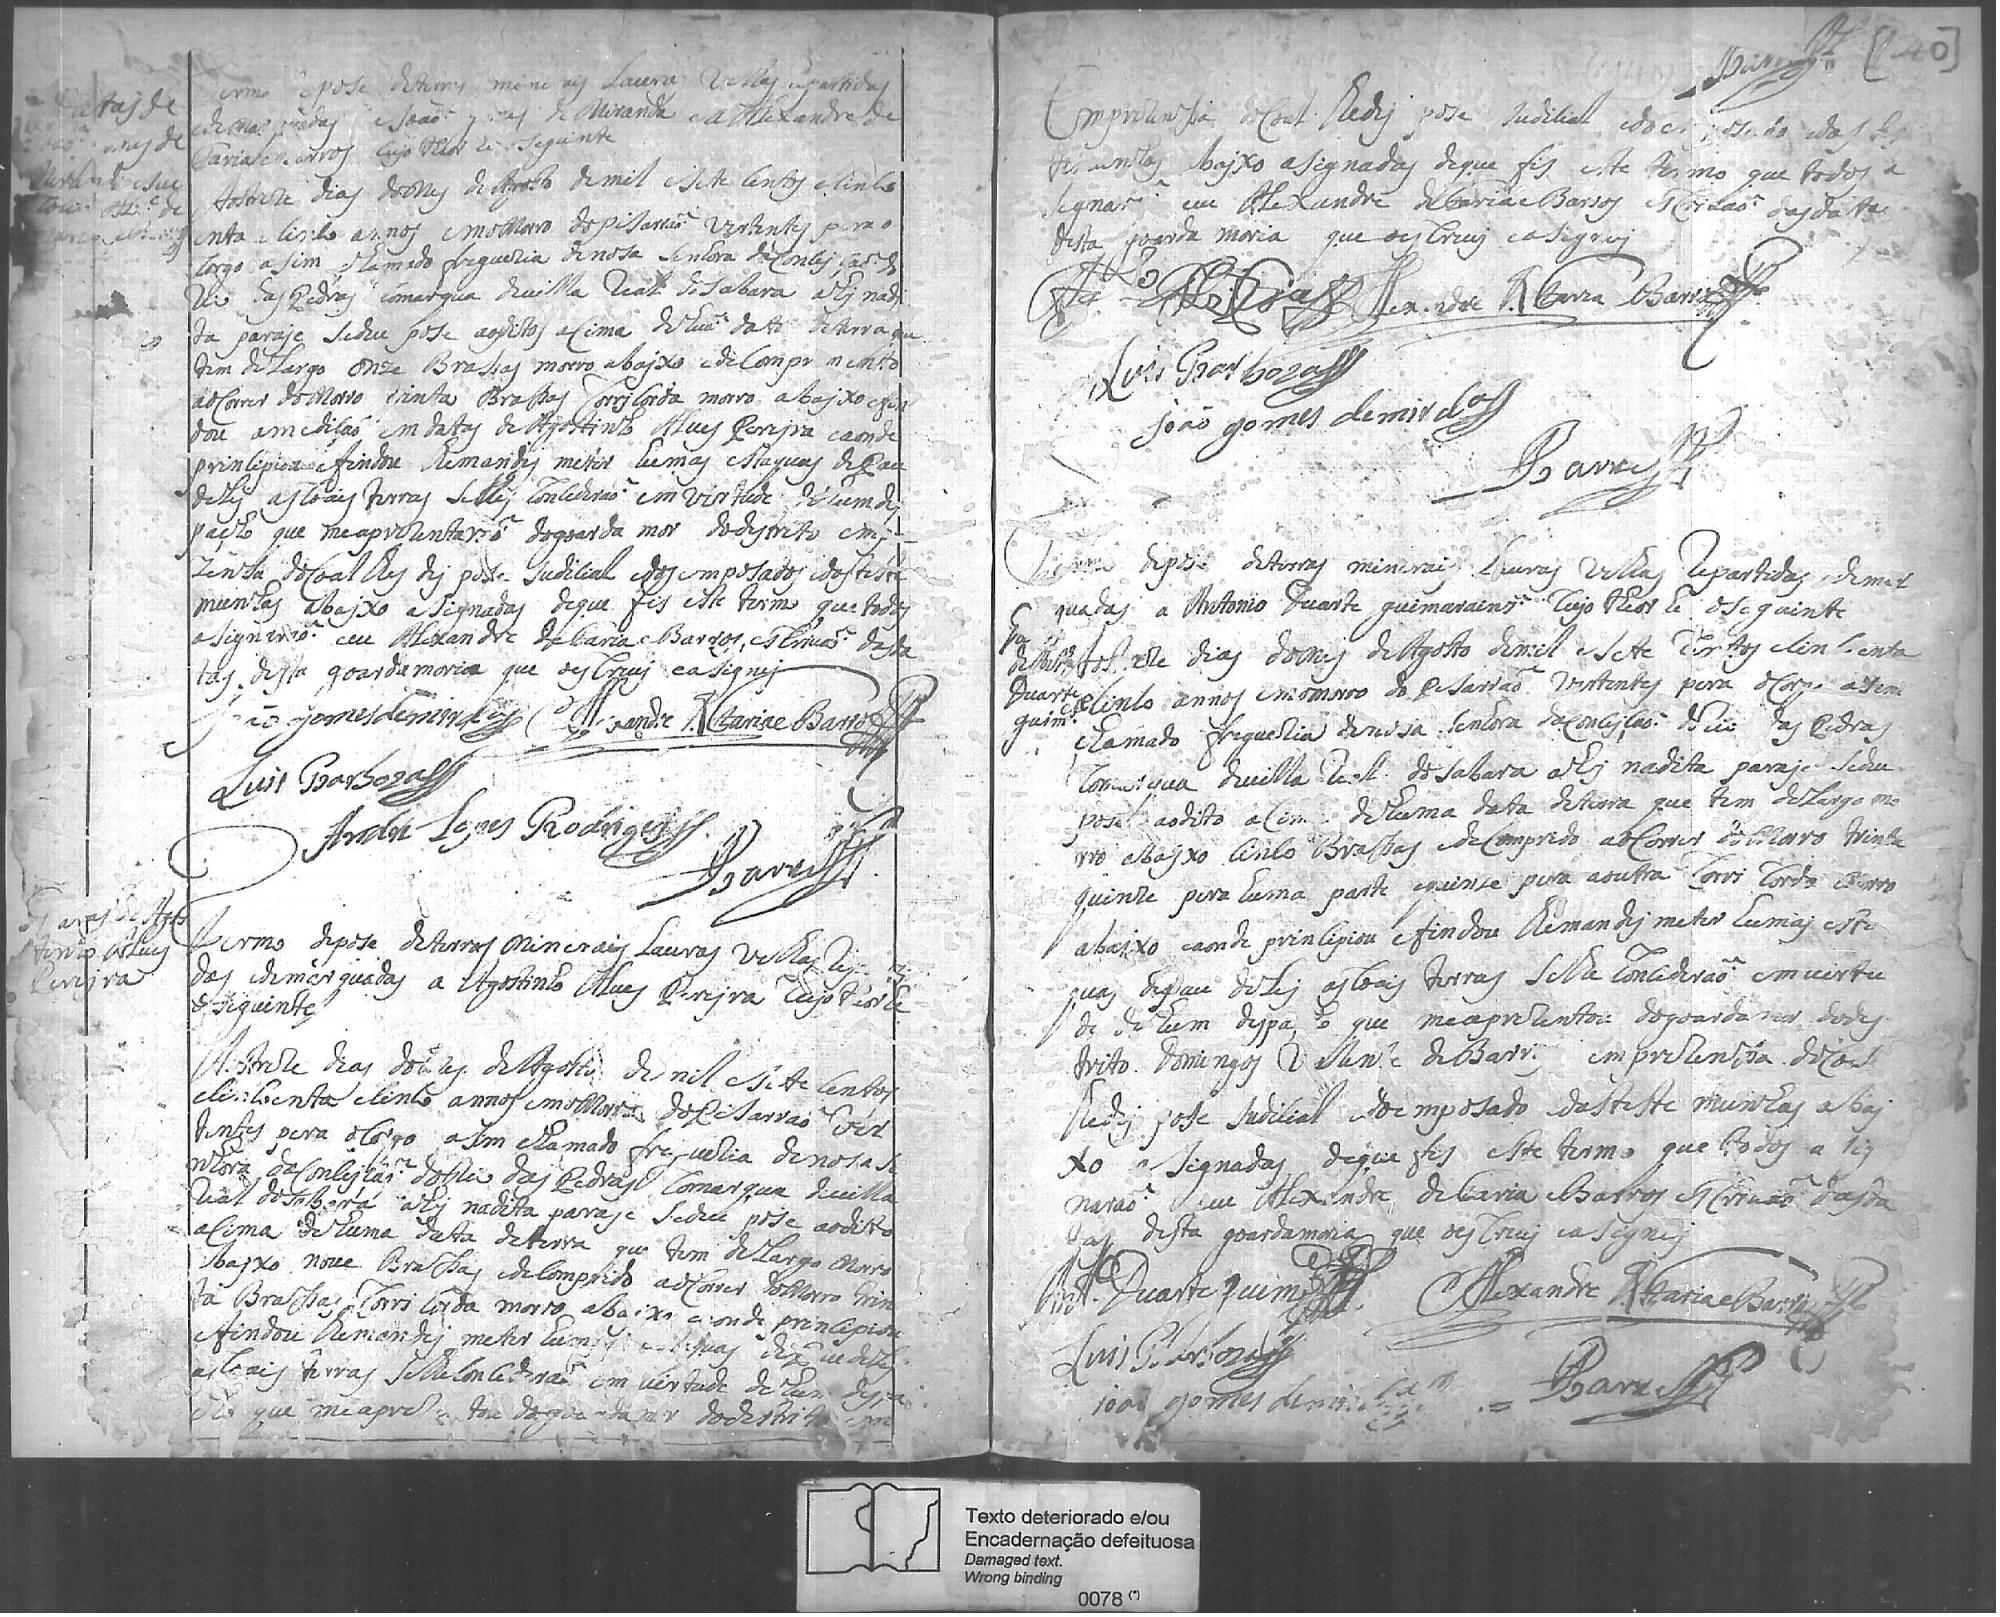 Termo epose deterras minerais Lauras Vellas Repartidas
edemarquadas a João gomes de Miranda e a Alexandre de
Caria e Barros Cujo theor he oseguinte
Aos treze dias domes de Agosto de mil e sete centos e cinco
enta e cinco annos em o Morro do pisarraõ vertentes pera o
corgo asim chamado freguezia denosa senhora da Conseiçaõ do
Rio das Pedras Comarqua deuilla Real do Sabara ahy nadi
ta paraje sedeu pose aoditos acima de hua data de terra que
tem deLargo onze Brassas morro abajxo edeComprimento
aoCorrer do Morro trinta Brassas Corri Corda morro abajxo efin
dou amediçaõ em datas de Agostinho Alues Perejra eaonde
prinsipiou e findou lhe mandej meter humas estaquas de Pau
de Lej as coais terras se lhes Consederaõ em virtude de hum des
pacho que meaprezentaraõ do goarda mor do destrito em pre
zensa do coal lhes dej pose Judisial edos emposados e das teste
munhas abajxo asignadas deque fis este termo que todos
asignaraõ eu Alexandre de Caria e Barros escriuaõ das da
tas desta goardamoria que oescreuj easignej
João gomes demirda Alexandre de Caria e Barros
Luis Barboza
Andre Lopes Rodrigues
Barros
Datas de Agos
tinho Alues
Perejra
Termo depose deterras Minerais Lauras Vellas Reparti
das edemarquadas a Agostinho Alues Perejra Cujo theor he
o seguinte
Aos treze dias do mes de Agosto de mil e sete centos
e cincoenta e cinco annos em o Morro do Pisarraõ ver
tentes pera o Corgo asim chamado freguezia denosa se
nhora da Conseiçaõ do Rio das Pedras Comarqua deuilla
Real do Sabará ahy nadita paraje sedeu pose aodito
acima de huma data de terra que tem deLargo Morro
abajxo noue Brassas edeComprido aoCorrer do Morro trin
ta Brassas Corri Corda morro abajxo eaonde prinsipiou
e findou lhe mandej meter humas estaquas de Pau de Lej
as coais terras se lhe Consederaõ em uirtude de hum despa
cho que meaprezentou do goardamor do destrito em
Barros
[140]
Emprezensia do Coal lhe dej pose Judisial edo emposado edas tes
temunhas abajxo asignadas deque fis este termo que todos a
signaraõ eu Alexandre de Caria e Barros escriuaõ das datas
desta goarda moria que oescreuj easignej
Alexandre de Caria e Barros
Luis Barboza
joão gomes demirda
Barros
Termo depose deterras minerais Lauras Vellas Repartidas edemar
quadas a Antonio Duarte guimarains Cujo theor he oseguinte
Duarte
guim.es
Aos treze dias domes de Agosto demil e sete Centos e cincoenta
e cinco annos em o morro do Pisarraõ vertentes pera oCorgo asim
chamado freguezia denosa senhora da Conseiçaõ do Rio das Pedras
Comarqua deuilla Real do Sabara ahy nadita paraje sedeu
pose aodito acima de huma data deterra que tem deLargo mo
rro abajxo cinco Brassas edeComprido aoCorrer do Morro trinta
quinze pera huma parte equinze pera aoutra Corri Corda Morro
abajxo eaonde prinsipiou e findou lhe mandej meter humas esta
quas de pau de Lej as coais terras se lhe Consederaõ em uirtu
de de hum despacho que meaprezentou do goarda mor do des
trito Domingos de Barros emprezensia do Coal
lhe dej pose Judisial edo emposado e das teste munhas abaj
xo asignadas deque fis este termo que todos asig
naraõ eu Alexandre de Caria e Barros escriuaõ das da
tas desta goardamoria que oescreuj easignej
Ant.o Duarte guim.es Alexandre de Caria e Barros
Luis Barboza
joaõ gomes demirda Barros
Texto deteriorado e/ou
Encadernação defeituosa
Damaged text.
Wrong binding
0078 (*)